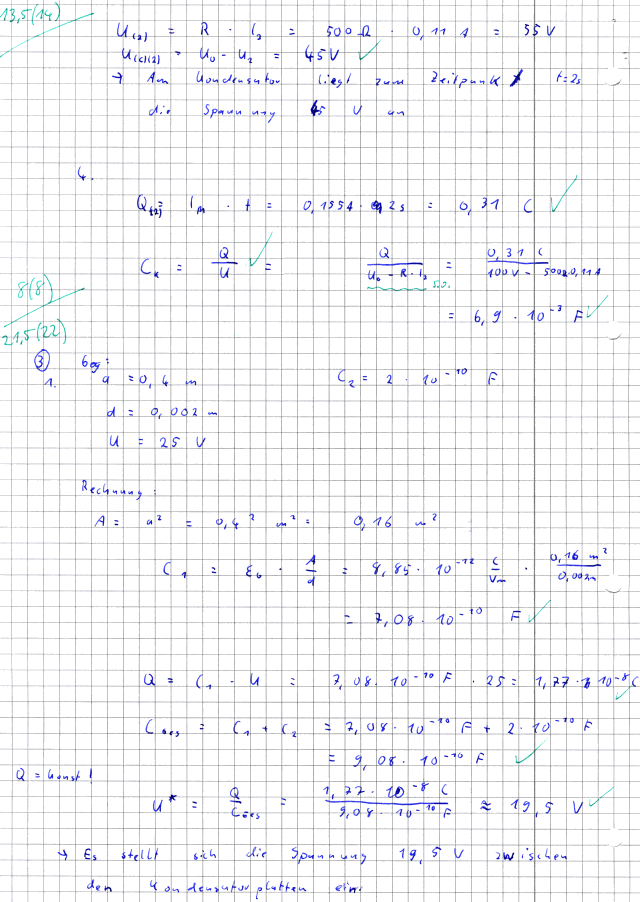 13,5(14)
U(2) = R · I₂ = 500 Ω · 0,11 A = 55 V
U(c)(2) = U₀ - U₂ = 45 V ✓
→ Am Kondensator liegt zum Zeitpunkt t=2s
die Spannung 45 V an
4.
Q(2) = I_M · t = 0,155A · 2s = 0,31 C ✓
C_K = Q/U ✓ = Q/(U₀ - R · I₂) = 0,31 C/(100V - 500Ω·0,11A)
s.o.
= 6,9 · 10⁻³ F ✓
8(8)
21,5(22)
③ Geg:
1. a = 0,4 m C₂ = 2 · 10⁻¹⁰ F
d = 0,002 m
U = 25 V
Rechnung:
A = a² = 0,4² m² = 0,16 m²
C₁ = ε₀ · A/d = 8,85 · 10⁻¹² C/Vm · 0,16 m²/0,002m
= 7,08 · 10⁻¹⁰ F ✓
Q = C₁ · U = 7,08 · 10⁻¹⁰ F · 25 = 1,77 · 10⁻⁸ C ✓
C_Ges = C₁ + C₂ = 7,08 · 10⁻¹⁰ F + 2 · 10⁻¹⁰ F
= 9,08 · 10⁻¹⁰ F ✓
Q = konst!
U* = Q/C_Ges = 1,77 · 10⁻⁸ C/9,08 · 10⁻¹⁰ F ≈ 19,5 V ✓
→ Es stellt sich die Spannung 19,5 V zwischen
den Kondensatorplatten ein.